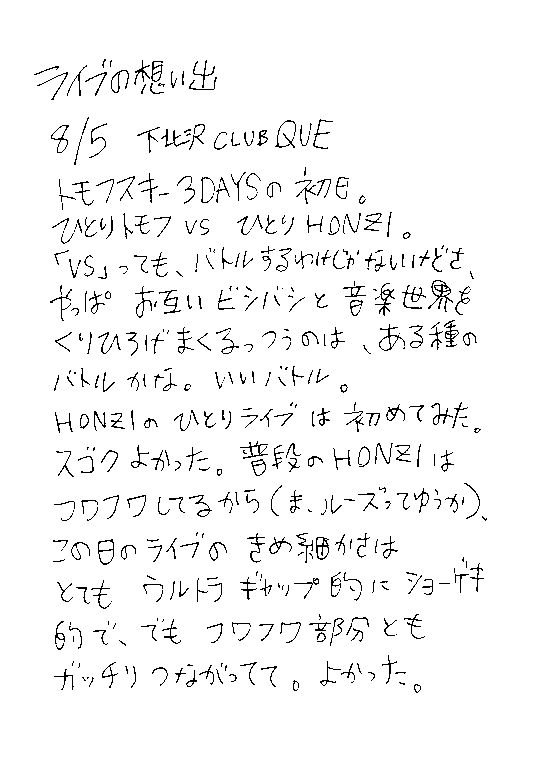 ライブの想い出
8/5 下北沢 CLUB QUE
トモフスキー3DAYSの初日。
ひとりトモフ VS ひとりHONZI。
「VS」っても、バトルするわけじゃないけどさ、
やっぱ お互い ビシバシと 音楽世界を
くりひろげまくるっつうのは、ある種の
バトルかな。いいバトル。
HONZIの ひとりライブ は 初めてみた。
スゴクよかった。普段のHONZIは
フワフワしてるから(ま、ルーズってゆうか)、
この日のライブの きめ細かさは
とても ウルトラ ギャップ的に ショーゲキ
的で、でも フワフワ部分とも
ガッチリつながってて。よかった。